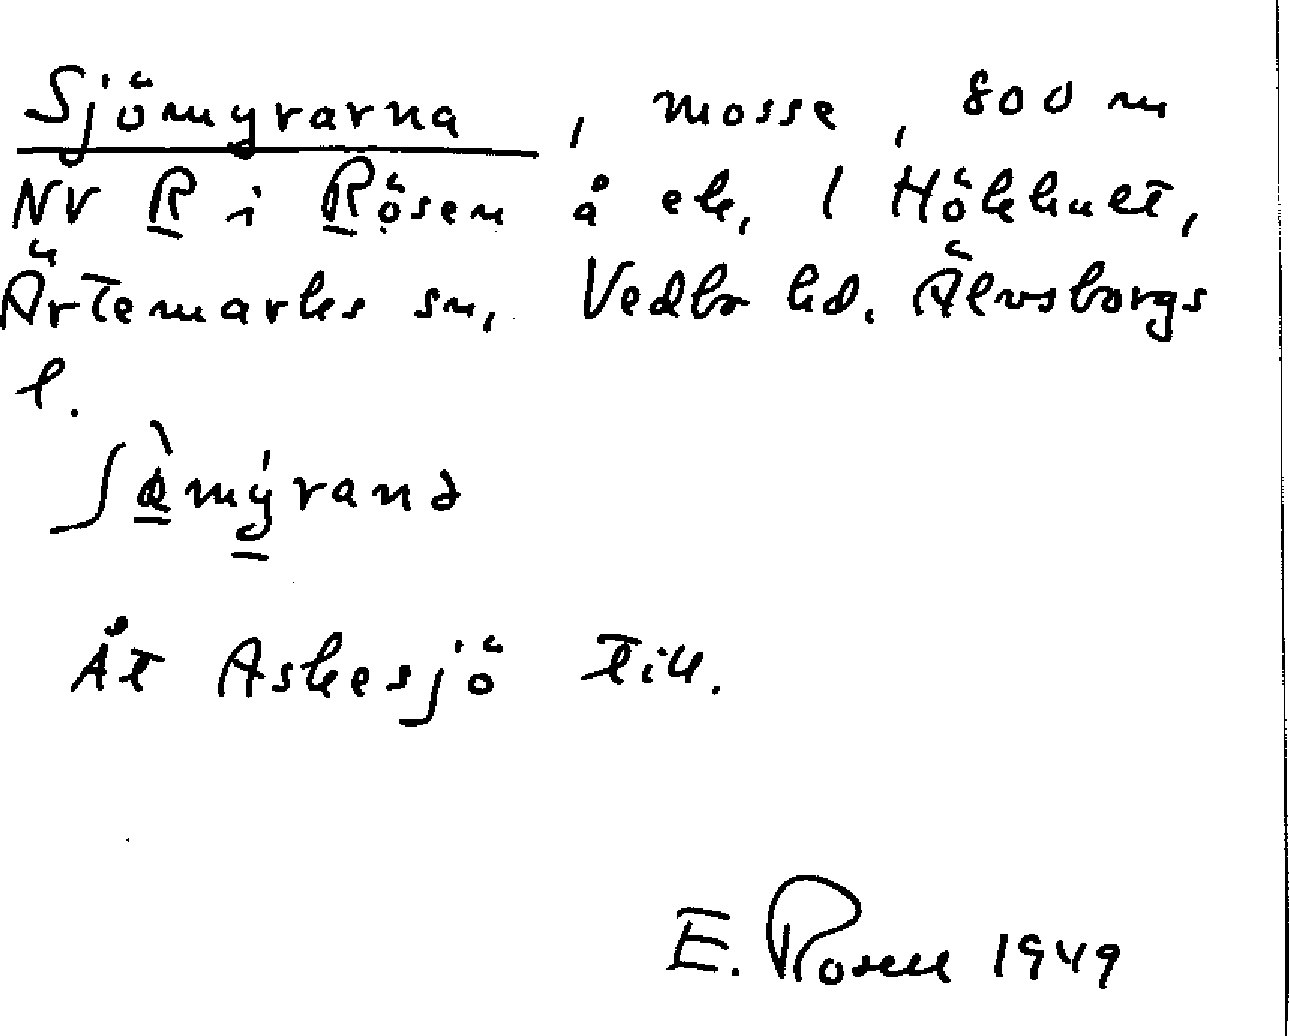 Sjömyrarna, mosse, 800 m
NV R i Rösen å ek, 1 Hökhult,
Ärtemarks sn, Vedbo hd. Älvsborgs
l.
Åt Askesjö till.
E. Rosell 1949